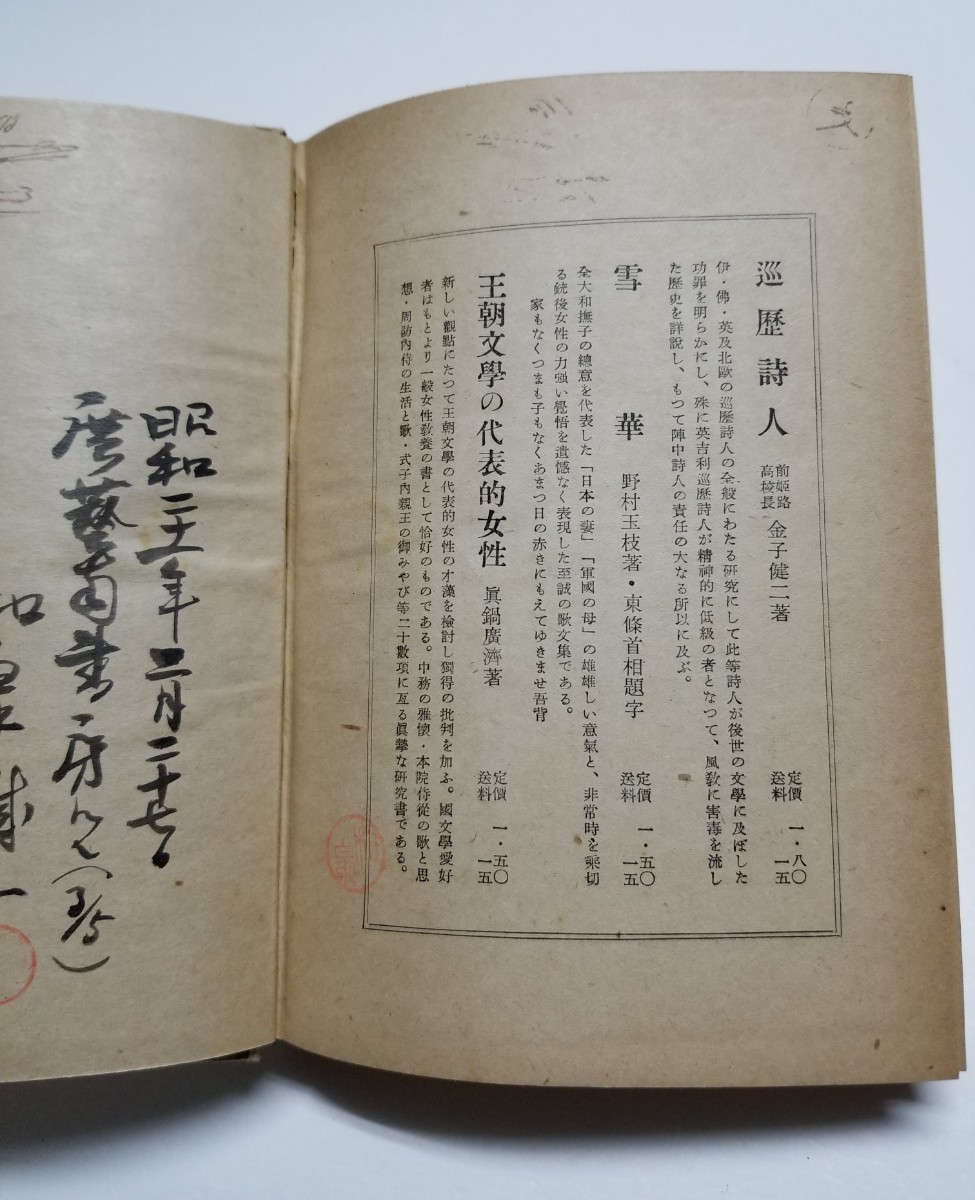 巡歷詩人
前姬路
高校長
金子健二著
定價 一・八〇
送料 一五
伊・佛・英及北歐の巡歷詩人の全般にわたる硏究にして此等詩人が後世の文學に及ぼした
功罪を明らかにし、殊に英吉利巡歷詩人が精神的に低級の者となつて、風敎に害毒を流し
た歷史を詳說し、もつて陣中詩人の責任の大なる所以に及ぶ。
雪華
野村玉枝著・東條首相題字
定價 一・五〇
送料 一五
全大和撫子の總意を代表した「日本の妻」「軍國の母」の雄雄しい意氣と、非常時を乘切
る銃後女性の力强い覺悟を遺憾なく表現した至誠の歌文集である。
家もなくつまも子もなくあまつ日の赤きにもえてゆきませ吾背
王朝文學の代表的女性
眞鍋廣濟著
定價 一・五〇
送料 一五
新しい觀點にたつて王朝文學の代表的女性の才藻を檢討し獨得の批判を加ふ。國文學愛好
者はもとより一般女性敎養の書として恰好のものである。中務の雅懷・本院侍從の歌と思
想・周防內侍の生活と歌・式子內親王の御みやび等二十數項に亙る眞摯な硏究書である。
昭和二十一年 二月二十七日